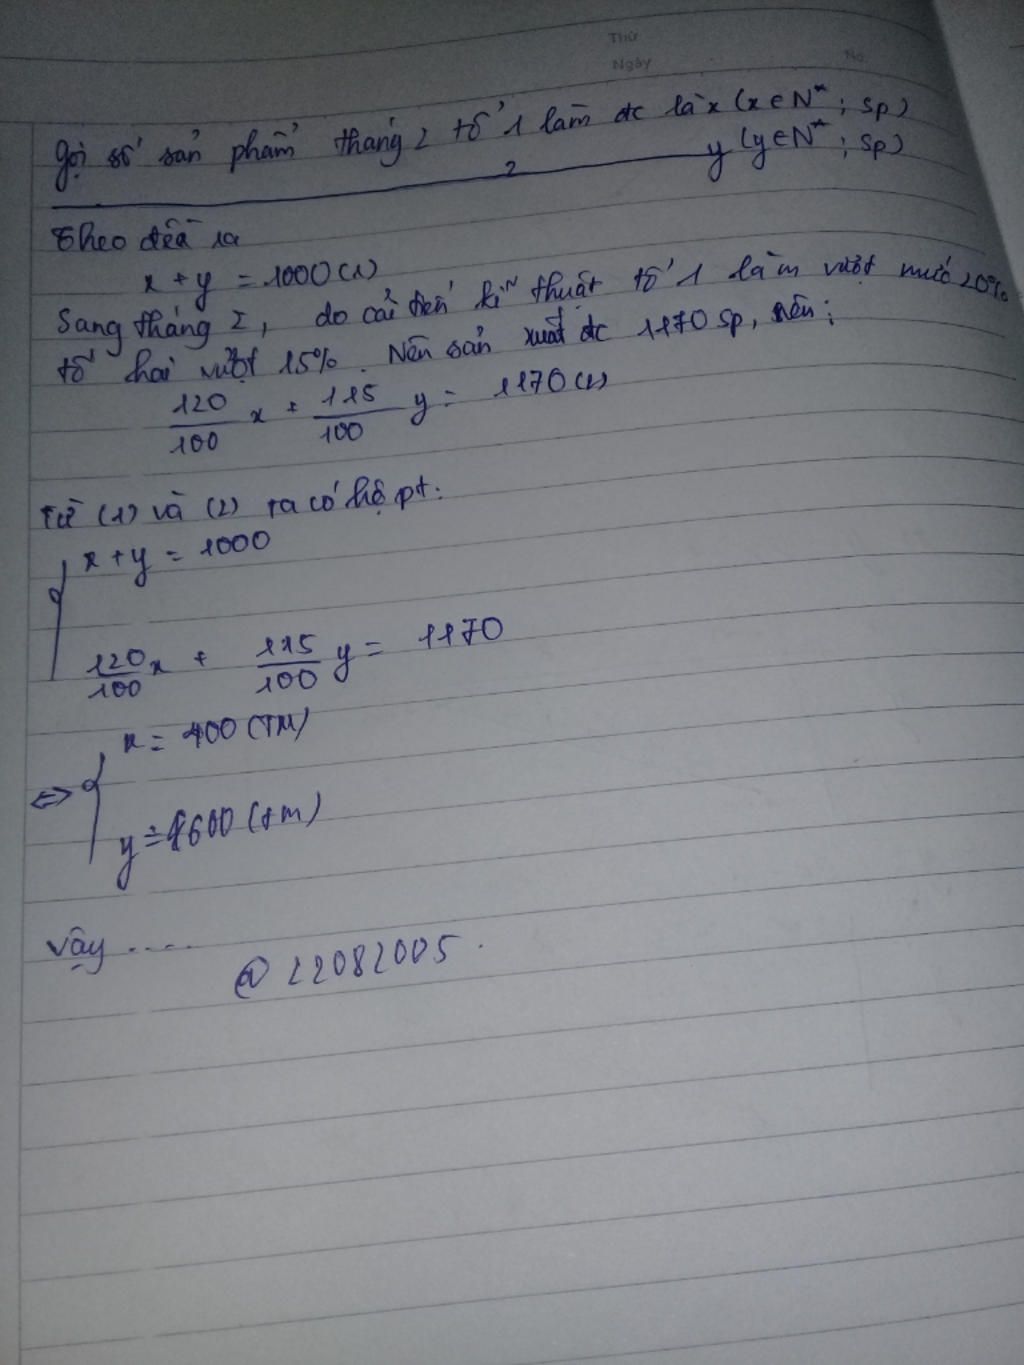 Thứ
Ngày
No.
Gọi số sản phẩm tháng 2 tổ 1 làm đc là x (x ∈ N*; sp)
2 y (y ∈ N*; sp)
Theo đề ra
x + y = 1000 (1)
Sang tháng 2, do cải tiến kĩ thuật tổ 1 làm vượt mức 20%
tổ hai vượt 15%. Nên sản xuất đc 1170 sp, nên;
120/100 x + 115/100 y = 1170 (2)
Từ (1) và (2) ta có hệ pt:
x + y = 1000
120/100 x + 115/100 y = 1170
x = 400 (TM)
⇔
y = 600 (tm)
Vậy ....
@ 22082005.